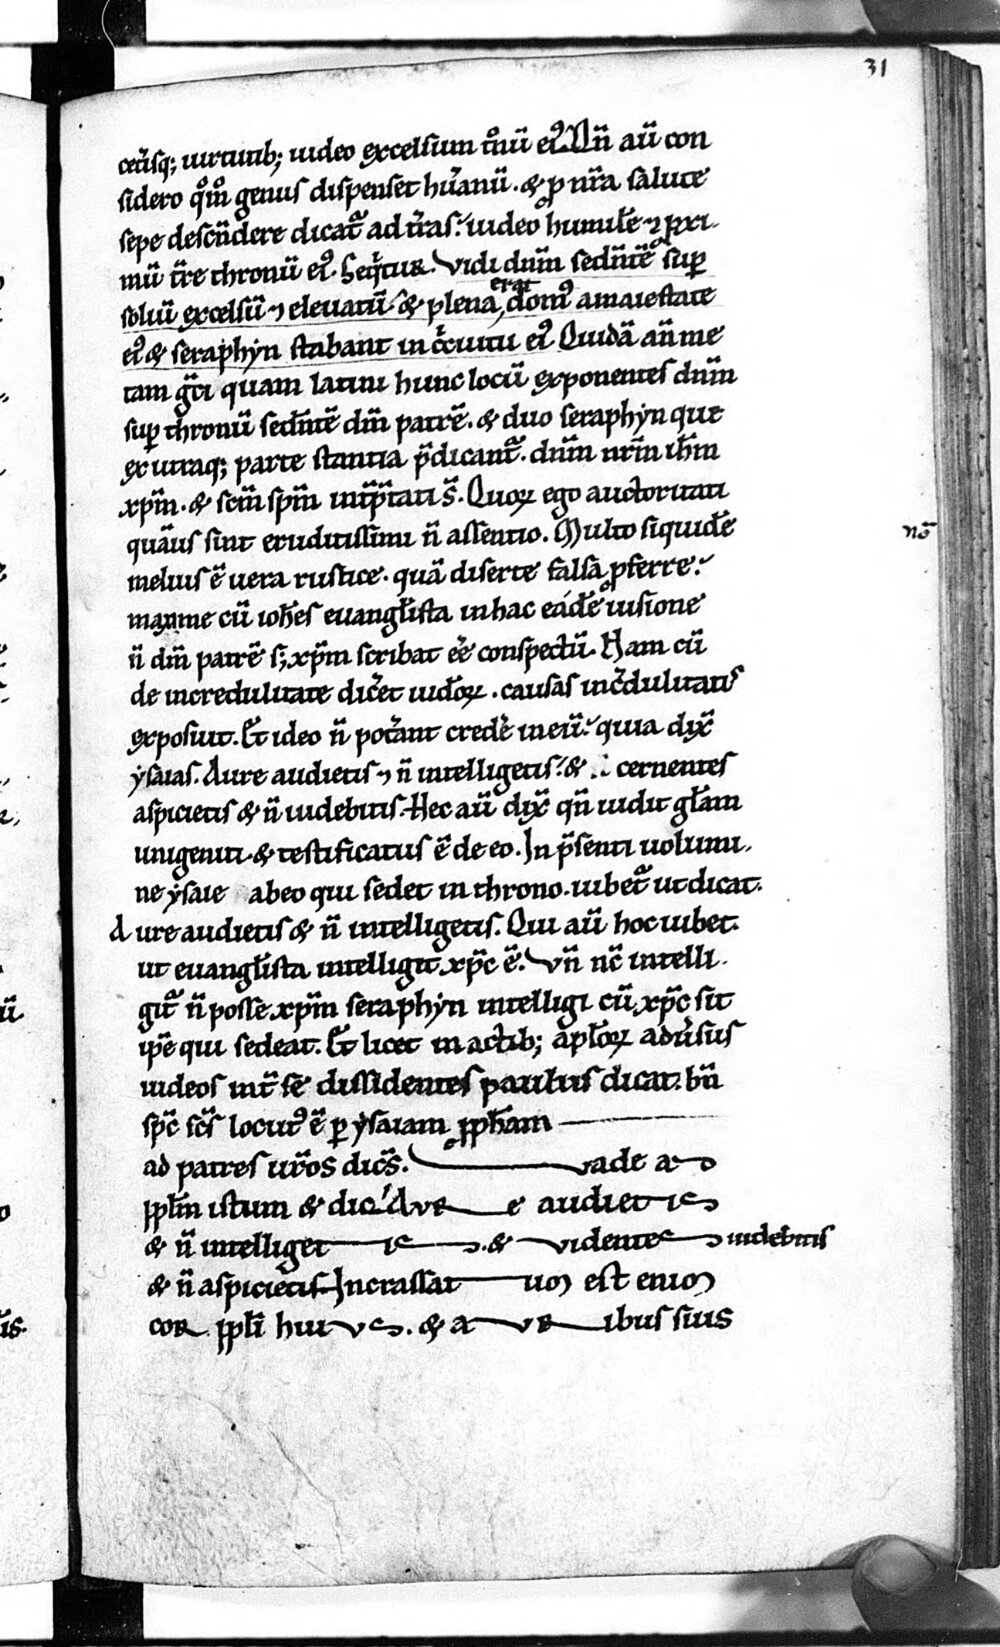 31
cet̃isq; uirtutib; uideo excelsum tͦnũ eiꝰ. Qñ aũ con
sidero qͦmͦ genus dispenset hũanũ. & ꝓ nr̃a salute
sepe descñdere dicat᷑ ad tr̃as. uideo humilẽ ⁊ ꝓxi
mũ tr̃e thronũ eiꝰ. Seqͥtur. Vidi dñm sedñtẽ suꝑ
soliũ excelsũ ⁊ eleuatũ. & plena erat domꝰ a maiestate
eiꝰ & seraphyn stabant in cͥcuitu eiꝰ. Quidã añ me
tam gr̃ci quam latini hunc locũ exponentes dñm
suꝑ thronũ sedñtẽ dm̃ patrẽ. & duo seraphyn que
ex utraq; parte stantia p̃dicant᷑. dñm nrm̃ ih̃m
xp̃m. & scm̃ spm̃ int̃p̃tati s̃. Quoꝝ ego auctoritati
quãuis sint eruditissimi ñ assentio. Multo siquidẽ
melius ẽ uera rustice. quã diserte falsa ꝓferre.
maxime cũ ioh̃es euangl̃ista in hac eadẽ uisione
ñ dm̃ patrẽ s; xp̃m scribat ẽe conspectũ. Nam cũ
de incredulitate dic̃et iudõꝝ. causas inc̃dulitatis
exposuit. Et ideo ñ pot̃ant credẽ in eũ. quia dix̃
ysaias. Aure audietis ⁊ ñ intelligetis. & cernentes
aspicietis & ñ uidebitis. Hec aũ dix̃ qñ uidit gl̃am
unigeniti. & testificatus ẽ de eo. In p̃senti uolumi
ne ysaie abeo qui sedet in throno. iubet᷑ ut dicat.
Aure audietis & ñ intelligetis. Qui aũ hoc iubet.
ut euangl̃ista intelligit xp̃c ẽ. Vñ nc̃ intelli
git᷑ ñ posse xp̃m seraphyn intelligi cũ xp̃c sit
ip̃e qui sedeat. Et licet in actib; apl̃oꝝ aduͥsus
iudeos int̃ se dissidentes paulus dicat. bñ
sp̃c sc̃s locutꝰ ẽ ꝑ ysaiam ꝓph̃am
ad patres ur̃os dic̃s. Vade ad
ppl̃m istum & dic. Aure audietis
& ñ intelligetis. & videntes uidebitis
& ñ aspicietis. Incrassatum est enim
cor ppl̃i huius. & auribus suis
nõ